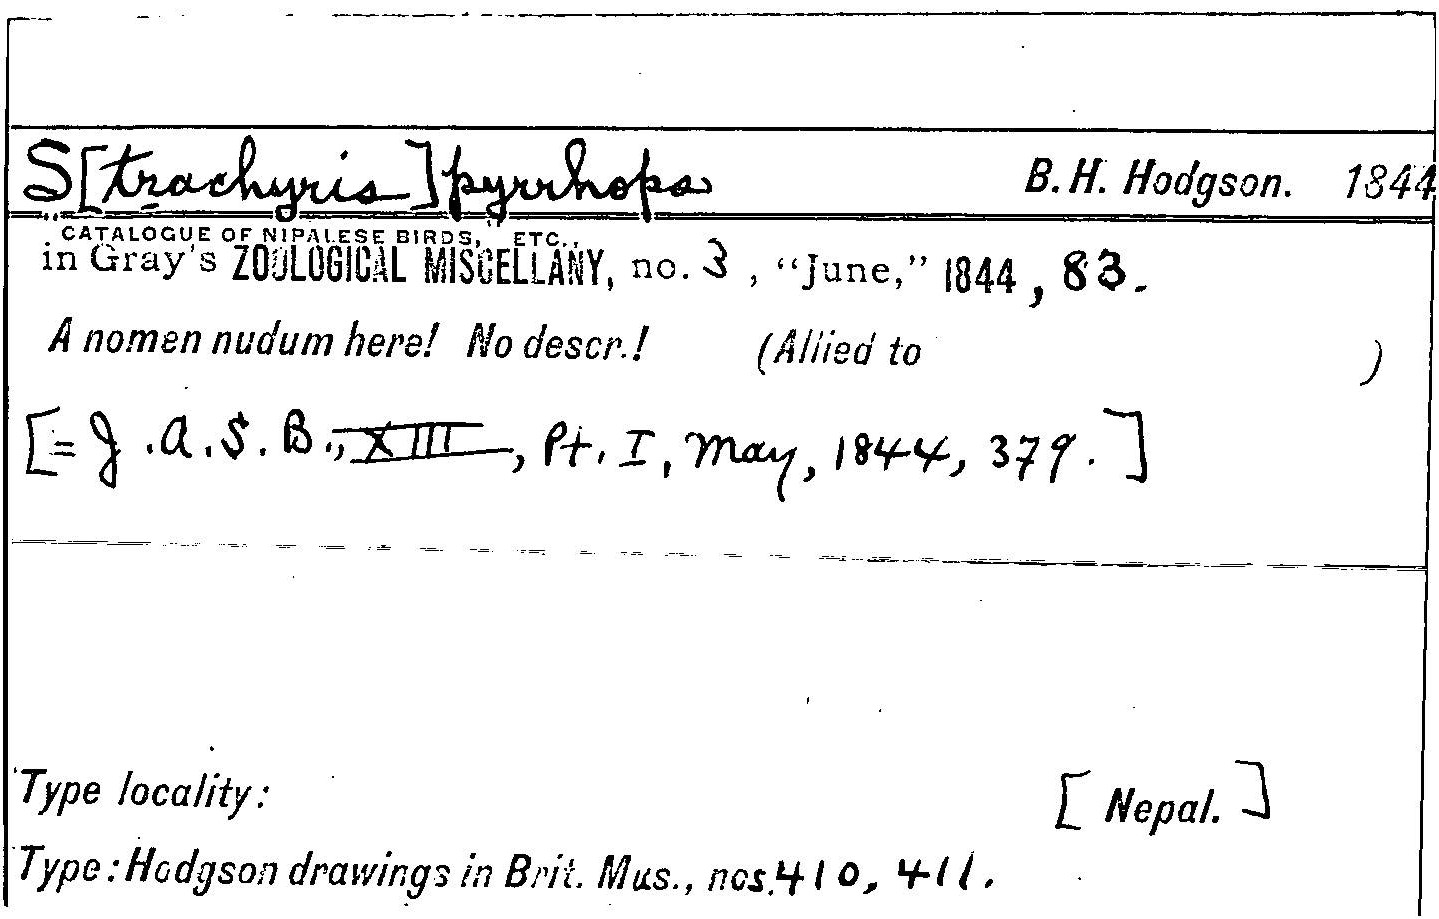 S[trachyris] pyrrhops B. H. Hodgson. 1844
"CATALOGUE OF NIPALESE BIRDS," ETC.,
in Gray's ZOÖLOGICAL MISCELLANY, no. 3, "June," 1844, 83.
A nomen nudum here! No descr.! (Allied to )
[= J.A.S.B., XIII, Pt. I, May, 1844, 379.]
Type locality: [Nepal.]
Type: Hodgson drawings in Brit. Mus., nos. 410, 411.